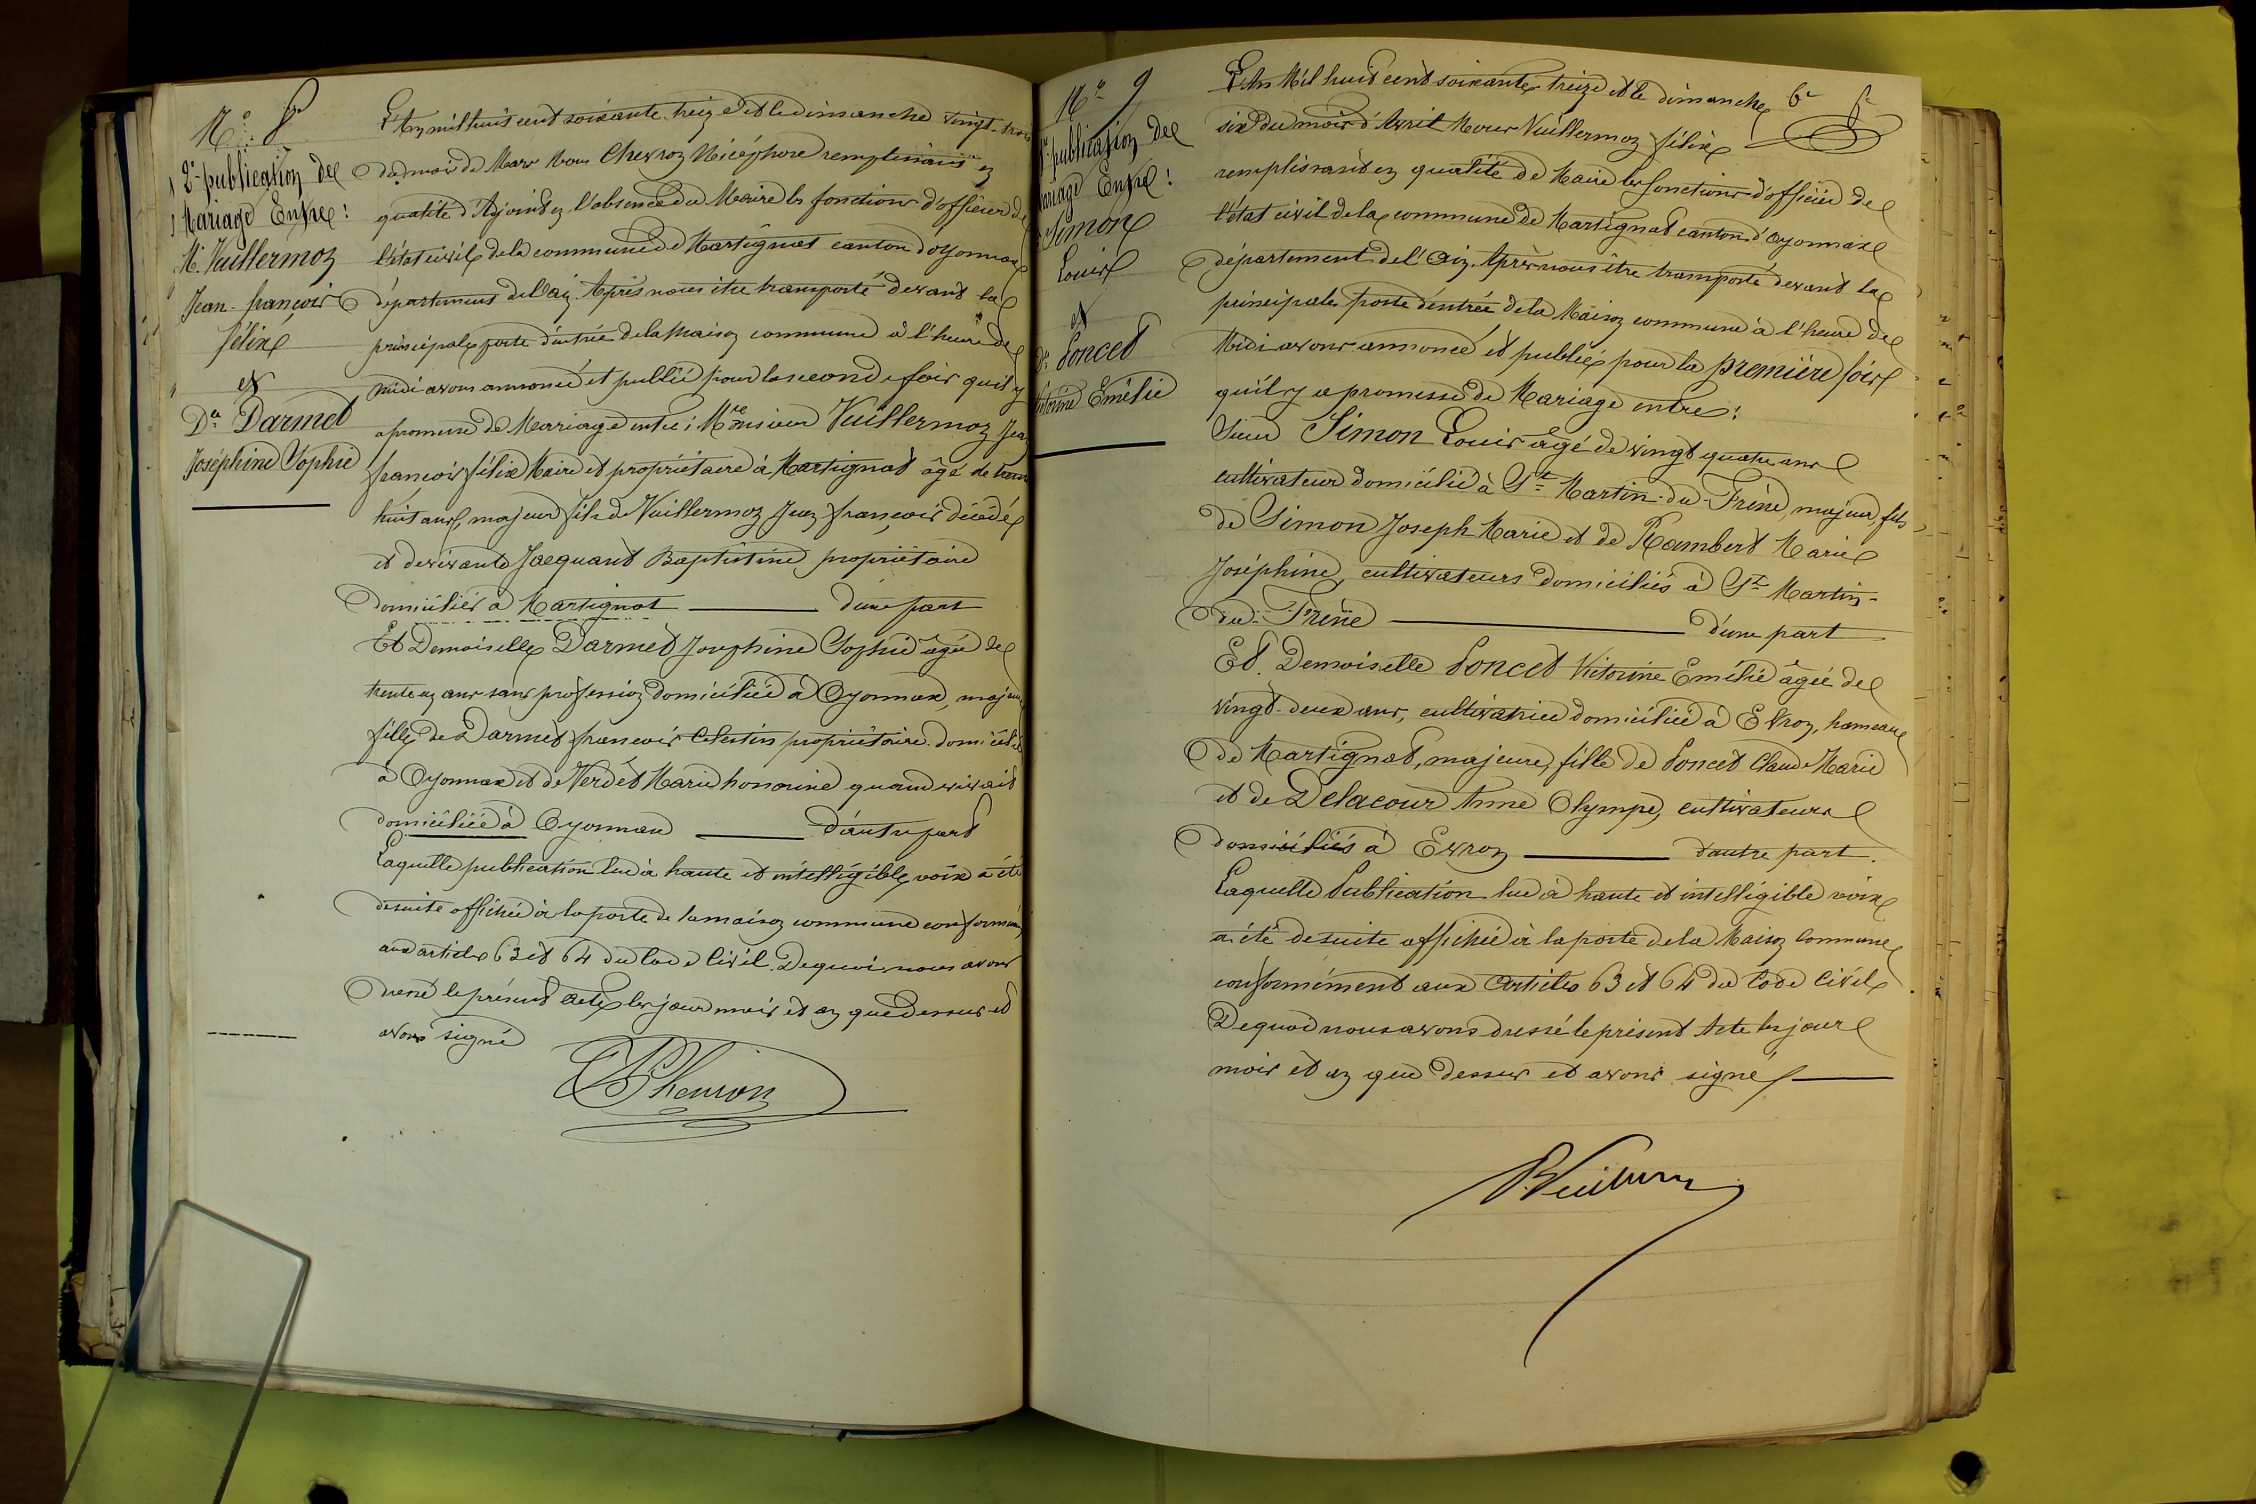 N° 8
2e publication de
Mariage Entre :
Mr Vuillermoz
Jean-françois
félix
et
Dlle Darmet
Joséphine Sophie
L'An mil huit cent soixante treize et le dimanche vingt-trois
du mois de Mars Nous Chevron Nicéphore remplissant en
qualité d'Adjoint en l'absence du Maire les fonctions d'officier de
l'état civil de la commune de Martignat canton d'oyonnax
département de l'ain. Après nous être transporté devant la
principale porte d'entrée de la Maison commune à l'heure de
midi avons annoncé et publié pour la seconde fois qu'il y
a promesse de Mariage entre ; Monsieur Vuillermoz Jean
françois félix Maire et propriétaire à Martignat âgé de trente
huit ans, majeur fils de Vuillermoz Jean françois décédé
et de vivante Jacquand Baptistine propriétaire
domiciliés à Martignat d'une part
Et Demoiselle Darmet Joséphine Sophie âgée de
trente un ans sans profession domiciliée à Oyonnax, majeure
fille de Darmet françois Célestin propriétaire domicilié
à Oyonnax et de Verdet Marie honorine quand vivait
domiciliée à Oyonnax d'autre part
Laquelle publication lue à haute et intelligible voix a été
desuite affichée à la porte de la maison commune conformément
aux articles 63 et 64 du Code Civil. Dequoi nous avons
dressé le présent acte les jour mois et an que dessus et
avons signé
N Chevron
N° 9
1e publication de
Mariage Entre :
Simon
Louis
et
Dlle Poncet
Victorine Emélie
6e f
L'An Mil huit cent soixante treize et le dimanche
six du mois d'Avril Nous Vuillermoz félix
remplissant en qualité de Maire les fonctions d'officier de
l'état civil de la commune de Martignat canton d'oyonnax
département de l'Ain. Après nous être transporté devant la
principale porte d'entrée de la Maison commune à l'heure de
Midi avons annoncé et publié pour la première fois
qu'il y a promesse de Mariage entre :
Sieur Simon Louis âgé de vingt quatre ans
cultivateur domicilié à St Martin-du-Frêne, majeur, fils
de Simon Joseph Marie et de Rambert Marie
Joséphine, cultivateurs domiciliés à St Martin-
du-Frêne d'une part
Et Demoiselle Poncet Victorine Emélie âgée de
vingt-deux ans, cultivatrice domiciliée à Evron, hameau
de Martignat, majeure, fille de Poncet Claude Marie
et de Delacour Anne Olympe, cultivateurs
domiciliés à Evron d'autre part.
Laquelle Publication lue à haute et intelligible voix
a été desuite affichée à la porte de la Maison Commune
conformément aux Articles 63 et 64 du Code Civil
Dequoi nous avons dressé le présent Acte les jour
mois et an que dessus et avons signé
F. Vuillermoz